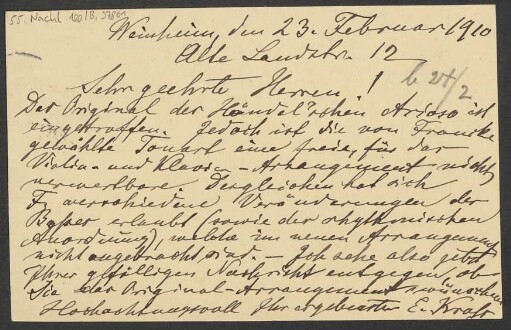 55. Nachl 100/B, 37861
Weinheim, den 23. Februar 1910
Alte Landstr. 12
Sehr geehrte Herren!
b 24/2
Das Original des Händel'schen Arioso ist
eingetroffen. Jedoch ist die von Francke
gewählte Tonart eine freie, für das
Violin- und Klavier-Arrangement nicht
verwertbare. Desgleichen hat sich
F. verschiedene Veränderungen der
Bässe erlaubt (sowie der rhythmischen
Anordnung), welche im neuen Arrangement
nicht angebracht sind. – Ich sehe also jetzt
Ihrer gefälligen Nachricht entgegen, ob
Sie das Original-Arrangement wünschen
Hochachtungsvoll Ihr ergebenster E. Kraft